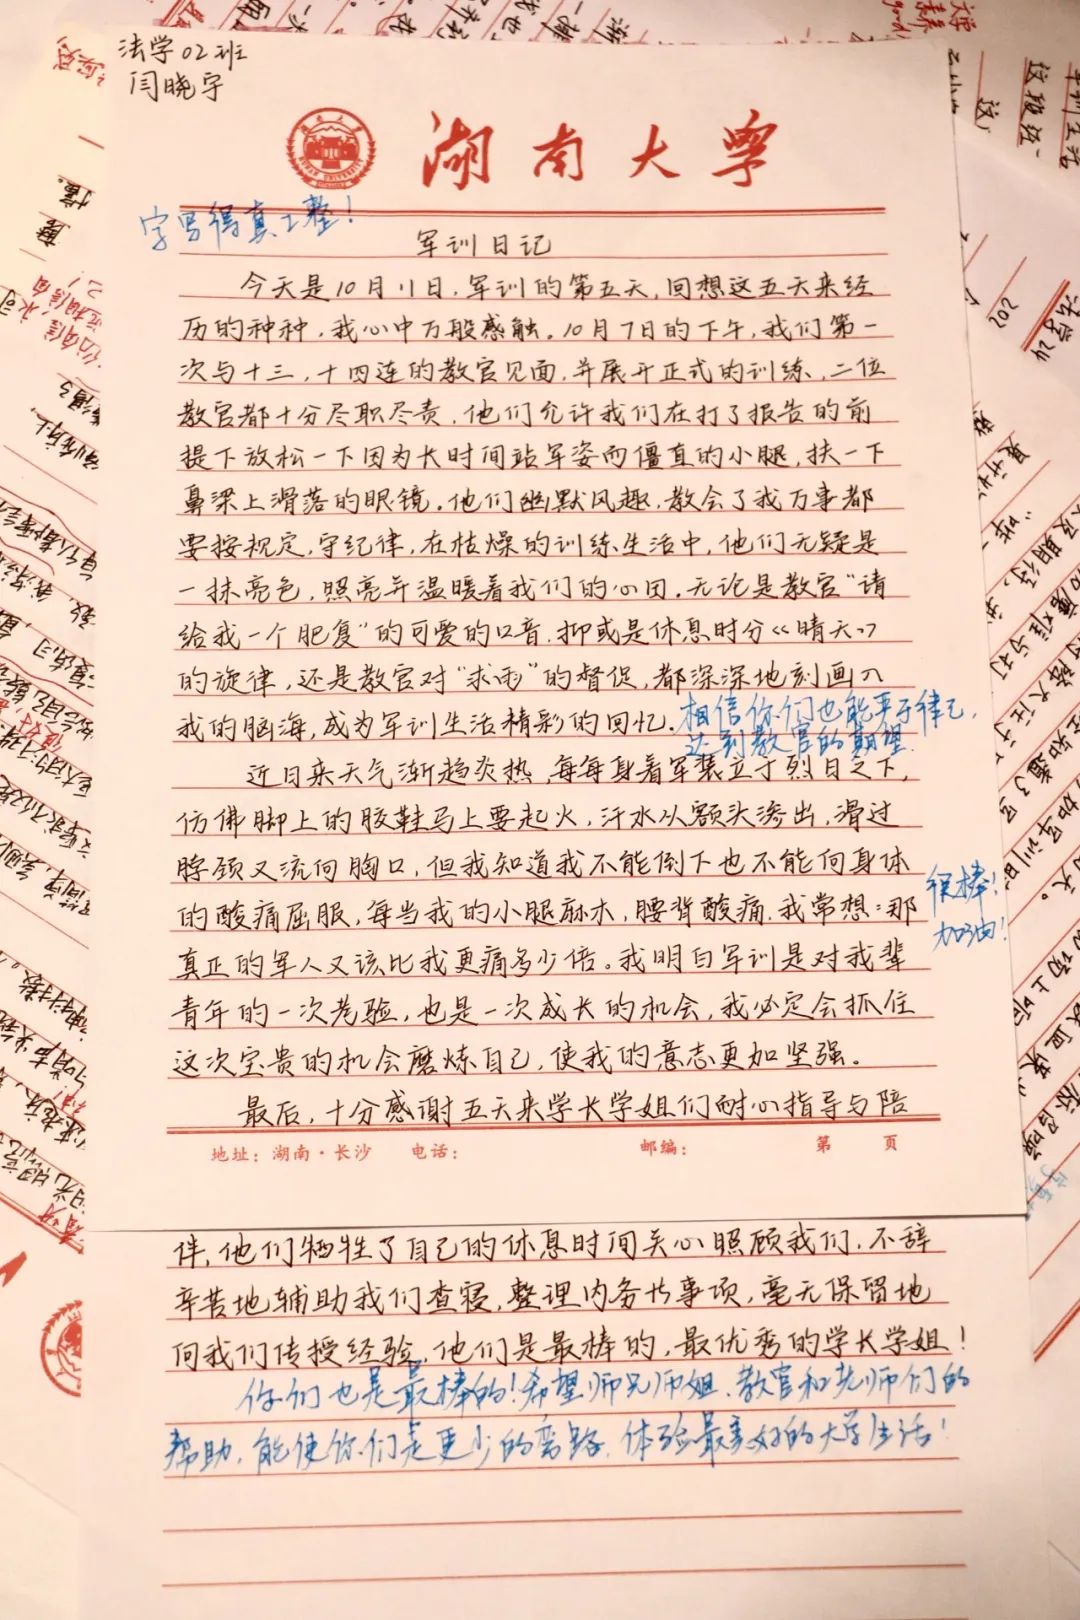 法学02班
闫晓宇
湖南大学
字写得真工整!
军训日记
今天是10月11日,军训的第五天,回想这五天来经
历的种种,我心中万般感触。10月7日的下午,我们第一
次与十三,十四连的教官见面,并展开正式的训练,二位
教官都十分尽职尽责,他们允许我们在打了报告的前
提下放松一下因为长时间站军姿而僵直的小腿,扶一下
鼻梁上滑落的眼镜。他们幽默风趣,教会了我万事都
要按规定,守纪律,在枯燥的训练生活中,他们无疑是
一抹亮色,照亮并温暖着我们的心田。无论是教官“请
给我一个肥复”的可爱的口音,抑或是休息时分《晴天》
的旋律,还是教官对“求雨”的督促,都深深地刻画入
我的脑海,成为军训生活精彩的回忆。
相信你们也能严于律己,
达到教官的期望.
近日来天气渐趋炎热,每每身着军装立于烈日之下,
仿佛脚上的胶鞋马上要起火,汗水从额头渗出,滑过
脖颈又流向胸口,但我知道我不能倒下也不能向身体
的酸痛屈服,每当我的小腿麻木,腰背酸痛,我常想:那
真正的军人又该比我更痛多少倍。我明白军训是对我辈
青年的一次考验,也是一次成长的机会,我必定会抓住
这次宝贵的机会磨炼自己,使我的意志更加坚强。
很棒!
加油!
最后,十分感谢五天来学长学姐们耐心指导与陪
地址:湖南·长沙 电话: 邮编: 第 页
伴,他们牺牲了自己的休息时间关心照顾我们,不辞
辛苦地辅助我们查寝,整理内务等事项,毫无保留地
向我们传授经验,他们是最棒的,最优秀的学长学姐!
你们也是最棒的!希望师兄师姐、教官和老师们的
帮助,能使你们走更少的弯路,体验最美好的大学生活!